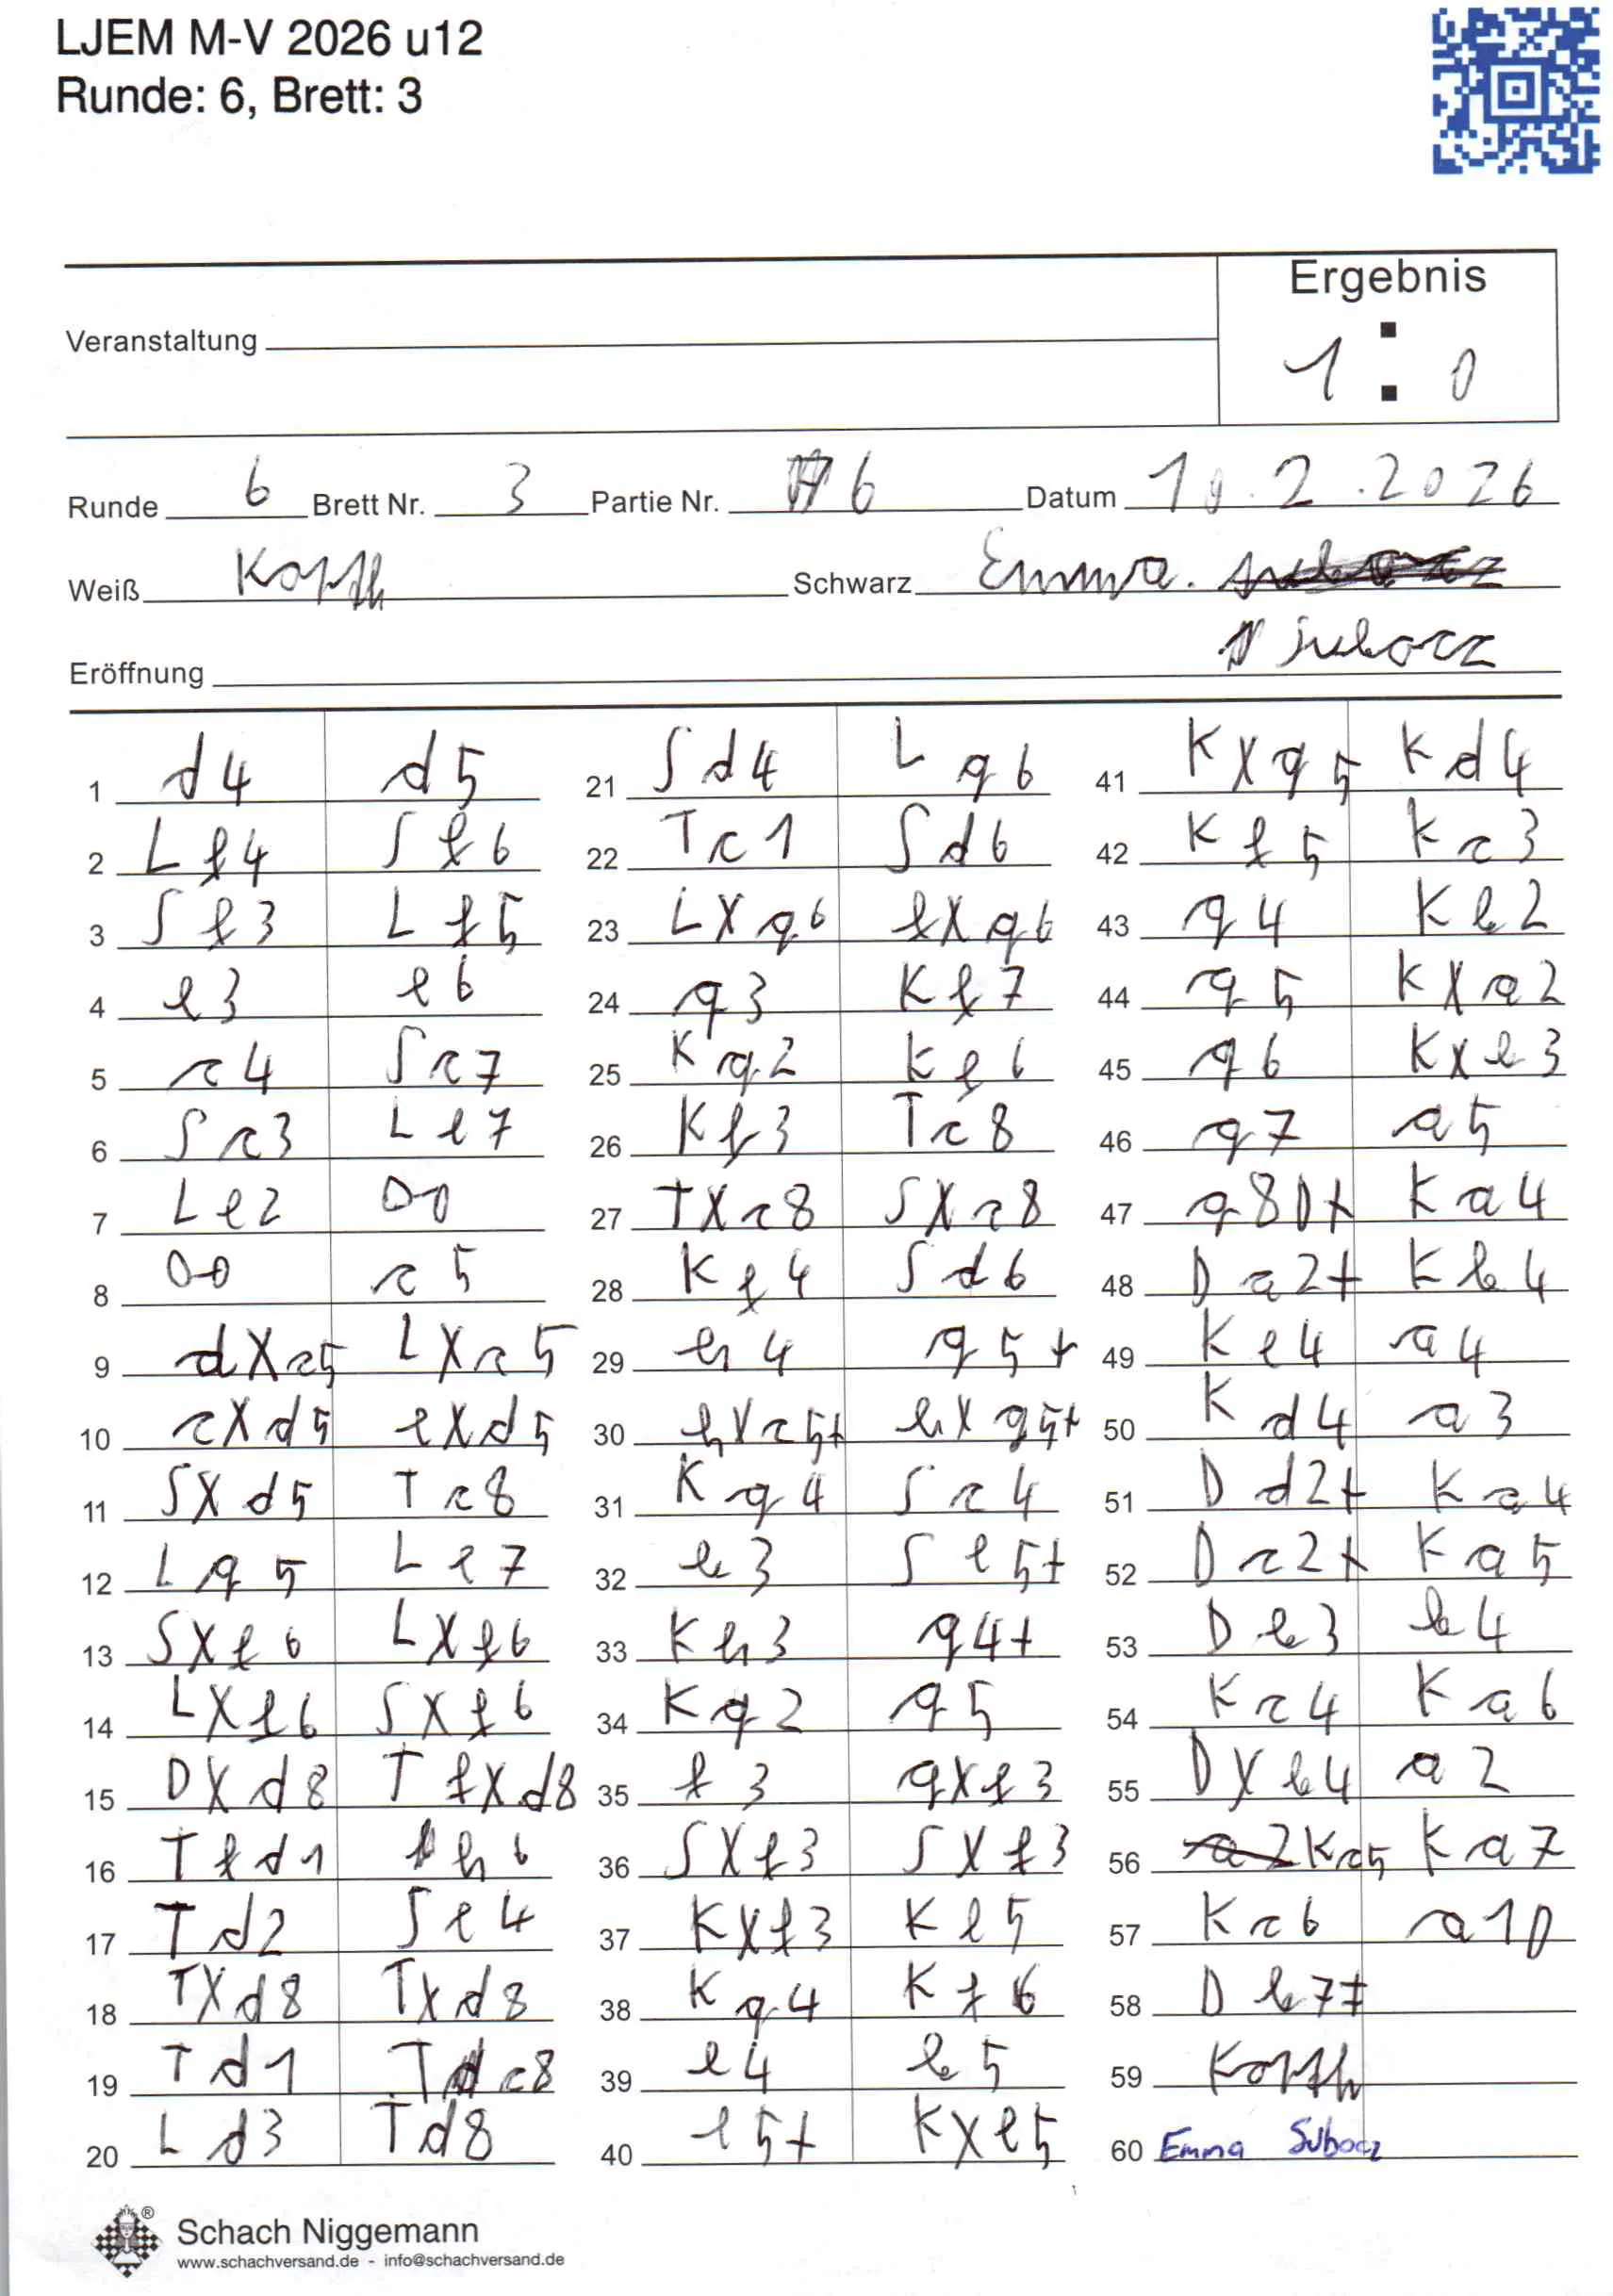 LJEM M-V 2026 u12
Runde: 6, Brett: 3
Ergebnis
Veranstaltung
1 : 0
Runde 6 Brett Nr. 3 Partie Nr. 6 Datum 10.2.2026
Weiß Kopfh Schwarz Emma.
Subocz
Eröffnung
1 d4 d5
2 Lf4 Sf6
3 Sf3 Lf5
4 e3 e6
5 c4 Sc7
6 Sc3 Le7
7 Le2 0-0
8 0-0 c5
9 dXc5 LXc5
10 cXd5 eXd5
11 SXd5 Tc8
12 Lg5 Le7
13 SXf6 LXf6
14 LXf6 SXf6
15 DXd8 TfXd8
16 Tfd1 h6
17 Td2 Se4
18 TXd8 TXd8
19 Td1 Tc8
20 Ld3 Td8
21 Sd4 Lg6
22 Tc1 Sd6
23 LXg6 fXg6
24 g3 Kf7
25 Kg2 Kf6
26 Kf3 Tc8
27 TXc8 SXc8
28 Kf4 Sd6
29 h4 g5+
30 hXc5+ hXg5+
31 Kg4 Sc4
32 b3 Se5+
33 Kh3 g4+
34 Kg2 g5
35 f3 gXf3
36 SXf3 SXf3
37 KXf3 Ke5
38 Kg4 Kf6
39 e4 b5
40 e5+ KXe5
41 KXg5 Kd4
42 Kf5 Kc3
43 g4 Kb2
44 g5 KXa2
45 g6 KXb3
46 g7 a5
47 g8D+ Ka4
48 Da2+ Kb4
49 Ke4 a4
50 Kd4 a3
51 Dd2+ Ka4
52 Dc2+ Ka5
53 Db3 b4
54 Kc4 Ka6
55 DXb4 a2
56 Kc5 Ka7
57 Kc6 a1D
58 Db7‡
59 Kopfh
60 Emma Subocz
®
Schach Niggemann
www.schachversand.de - info@schachversand.de